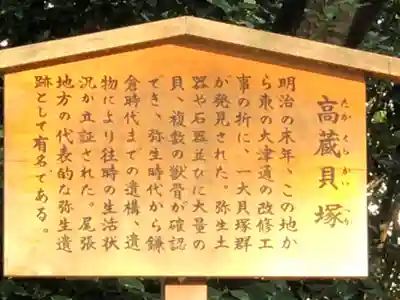 高蔵貝塚
たかくらかいづか
明治の末年、この地か
ら東の大津通の改修工
事の折に、一大貝塚群
が発見された。弥生土
器や石器並びに大量の
貝、複数の獣骨が確認
でき、弥生時代から鎌
倉時代までの遺構、遺
物により往時の生活状
況が立証された。尾張
地方の代表的な弥生遺
跡として有名である。